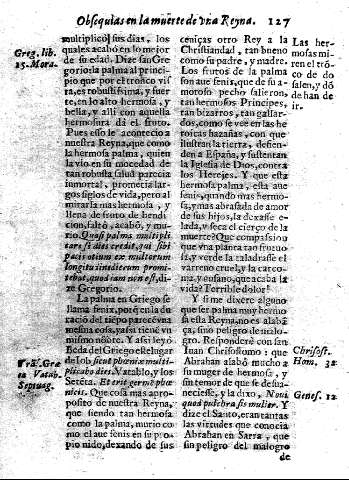 Obsequias en la muerte de vna Reyna. 127
Greg. lib.
25. Mora.
multiplicò sus dias, los
quales acabò en lo mejor
de su edad. Dize san Gre
gorio: la palma al princi
pio que por el tronco vis
ta, es robustissima, y fuer
te, en lo alto hermosa, y
bella, y alli con aquella
hermosura dà el fruto.
Pues esso le acontecio a
nuestra Reyna, que como
la hermosa palma, quien
la vio en su mocedad de
tan robusta salud parecia
inmortal, prometia lar-
gos siglos de vida, pero al
mirarla mas hermosa, y
llena de fruto de bendi
cion, faltò, acabò, y mu-
rio. Quasi palma multipli
care si dies credit, qui sibi
spatiorium ex multorum
longitudine dierum promi
tebat, quod iam non est, di
ze Gregorio.
La palma en Griego se
llama fenix, por q̃ en la du
racion del tiẽpo parecẽ vna
mesma cosa, ya si tiene vn
mismo nõbre. Y assi leyò
Beda del Griego el lugar
de Iob, sicut phœnix multi-
plicabo dies. Vatablo, y los
Setẽta. Et erit germẽ phœ
nicis. Que cosa mas apro-
posito de nuestra Reyna,
que siendo tan hermosa
como la palma, murio co
mo el aue fenix en su pro
pio nido, dexando de sus
Septuag.
cenizas otro Rey a la
Christiandad, tan bueno
como su padre, y madre.
Los frutos de la palma
son aue fenix, que de su a-
moroso pecho salieron,
tan hermosos Principes,
tan bizarros, tan gallar-
dos, como se vee en las he
roicas hazañas, con que
ilustran la tierra, defien-
den a España, y sustentan
la Iglesia de Dios, contra
los Hereges. Y que esta
hermosa palma, esta aue
fenix, quando mas hermo
sa, y mas abrasada de amor
de sus hijos, la dexasse ela-
da, y seca el cierço de la
muerte? Que compassion
que vna planta tan fructuo
sa, y verde la taladrasse el
varreno cruel, y la carco-
ma, y gusano, que acaba la
vida? Terrible dolor!
Y si me dixere alguno
que ser palma muy hermo
sa esta Reyna, no es alabã
ça, sino peligro de malo-
gro. Responderè con san
Iuan Chrisostomo: que
Abrahan alabò mucho a
su muger de hermosa, y
sin temor de que se desua-
neciesse, y la dixo, Noui
quod pulchra sis mulier. Y
dize el Santo, eran tantas
las virtudes que conocia
Abrahan en Sarra, que
sin peligro del malogro
de
Las her-
mosas mi
ren el trõ
co de do
salen, y dõ
de han de
ir.
Chrisost.
Hom. 32.
Genes. 12.